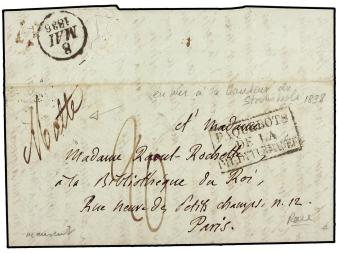 8
MAI
1838
en mer à la hauteur de
Stromboli 1838
Malte
PAQUEBOTS
DE LA
MÉDITERRANÉE
A Madame
Madame Raoul-Rochette
à la Bibliothèque du Roi,
Rue neuve des Petits champs, n. 12.
Paris.
Rare